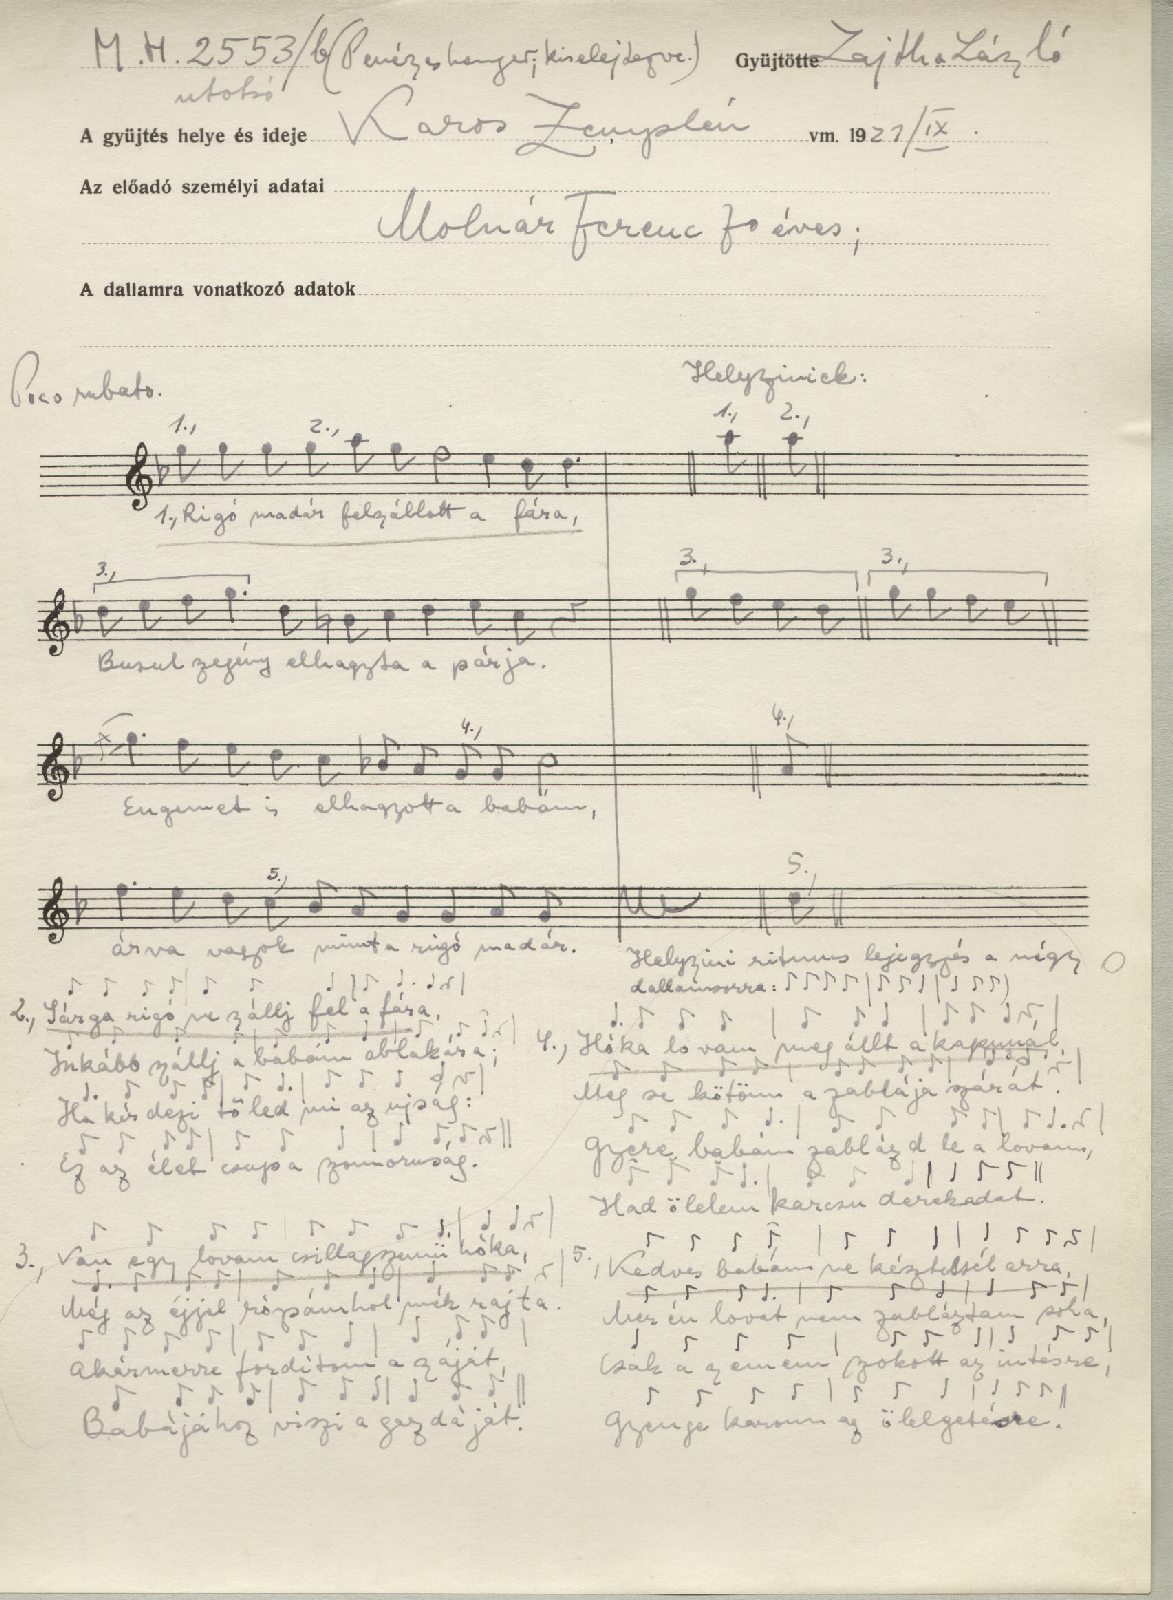 M.H. 2553/b (Penészhenger; kiselejtezve.) Gyüjtötte Lajtha László
utolsó
A gyüjtés helye és ideje Karos Zemplén vm. 1921/IX.
Az előadó személyi adatai
Molnár Ferenc 70 éves;
A dallamra vonatkozó adatok
Poco rubato.
Helyziniek:
1., 2., 1., 2.,
1., Rigó madár felzállott a fára,
3., 3., 3.,
Busul zegény elhagzta a párja.
4., 4.,
Engemet is elhagzott a babám,
5., 5.,
árva vagzok mint a rigó madár.
Helyzini ritmus lejegzés a négy
dallamsorra:
2., Sárga rigó ne zállj fel a fára,
Inkább zállj a babám ablakára;
Ha kérdezi tőled mi az ujság:
Ez az élet csupa zomoruság.
3., Van egy lovam csillagszemü hóka,
Még az éjjel rózám hol mék rajta.
Akármerre fordítom a záját,
Babájához viszi a gazdáját.
4., Hóka lovam megállt a kapunál,
Meg se kötöm a zablája szárát.
Gyere babám zablázd le a lovam,
Had ölelem karcsu derekadat.
5., Kedves babám ne késztessél arra,
Mer én lovat nem zabláztam soha,
Csak a zemem zokott az intésre,
Gyenge karom az ölelgetésre.